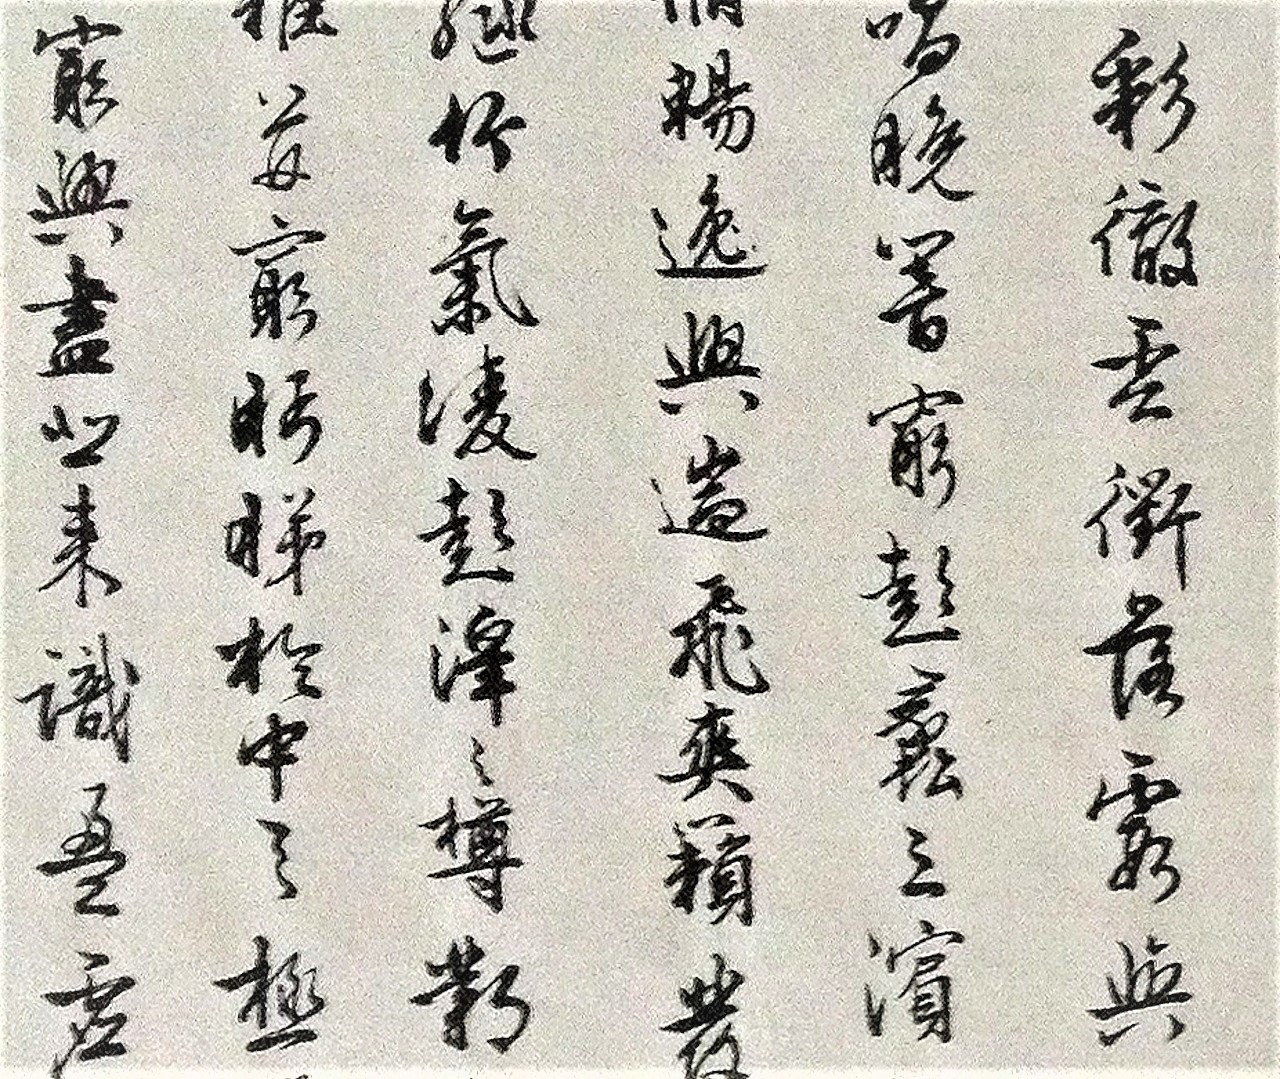 彩徹雲衢落霞與
唱晚響窮彭蠡之濱
俯暢逸興遄飛爽籟發
綠竹氣淩彭澤之樽鄴
難并窮眄睇於中天極
窮興盡悲來識盈虛